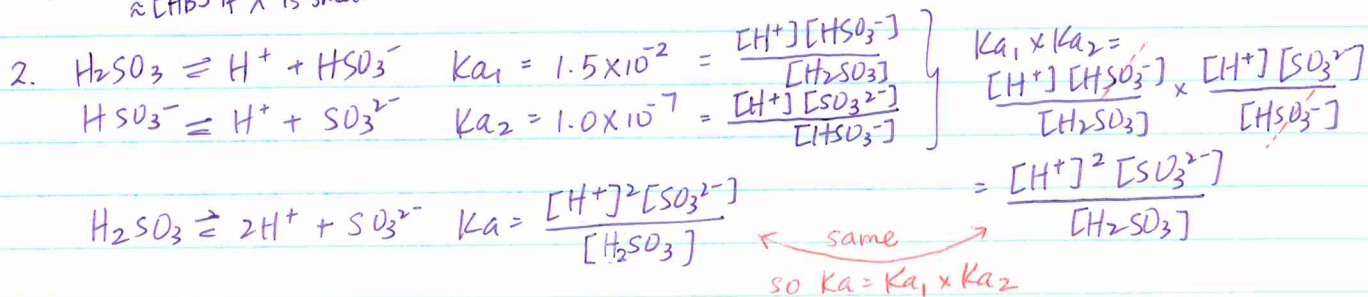 ≈ [HB] if x is
2. H₂SO₃ ⇌ H⁺ + HSO₃⁻ Ka₁ = 1.5×10⁻² = [H⁺][HSO₃⁻] / [H₂SO₃]
HSO₃⁻ ⇌ H⁺ + SO₃²⁻ Ka₂ = 1.0×10⁻⁷ = [H⁺][SO₃²⁻] / [HSO₃⁻]
Ka₁ × Ka₂ =
[H⁺][HSO₃⁻] / [H₂SO₃] × [H⁺][SO₃²⁻] / [HSO₃⁻]
= [H⁺]²[SO₃²⁻] / [H₂SO₃]
H₂SO₃ ⇌ 2H⁺ + SO₃²⁻ Ka = [H⁺]²[SO₃²⁻] / [H₂SO₃]
same
so Ka = Ka₁ × Ka₂